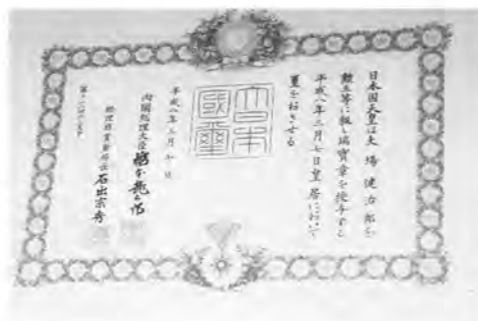 日本国天皇は大場健治郎を
勲五等に叙し瑞宝章を授与する
平成八年三月七日皇居において
璽をおさせる
大日本國璽
平成八年三月七日
内閣総理大臣 橋本龍太郎
総理府賞勲局長 石出宗秀